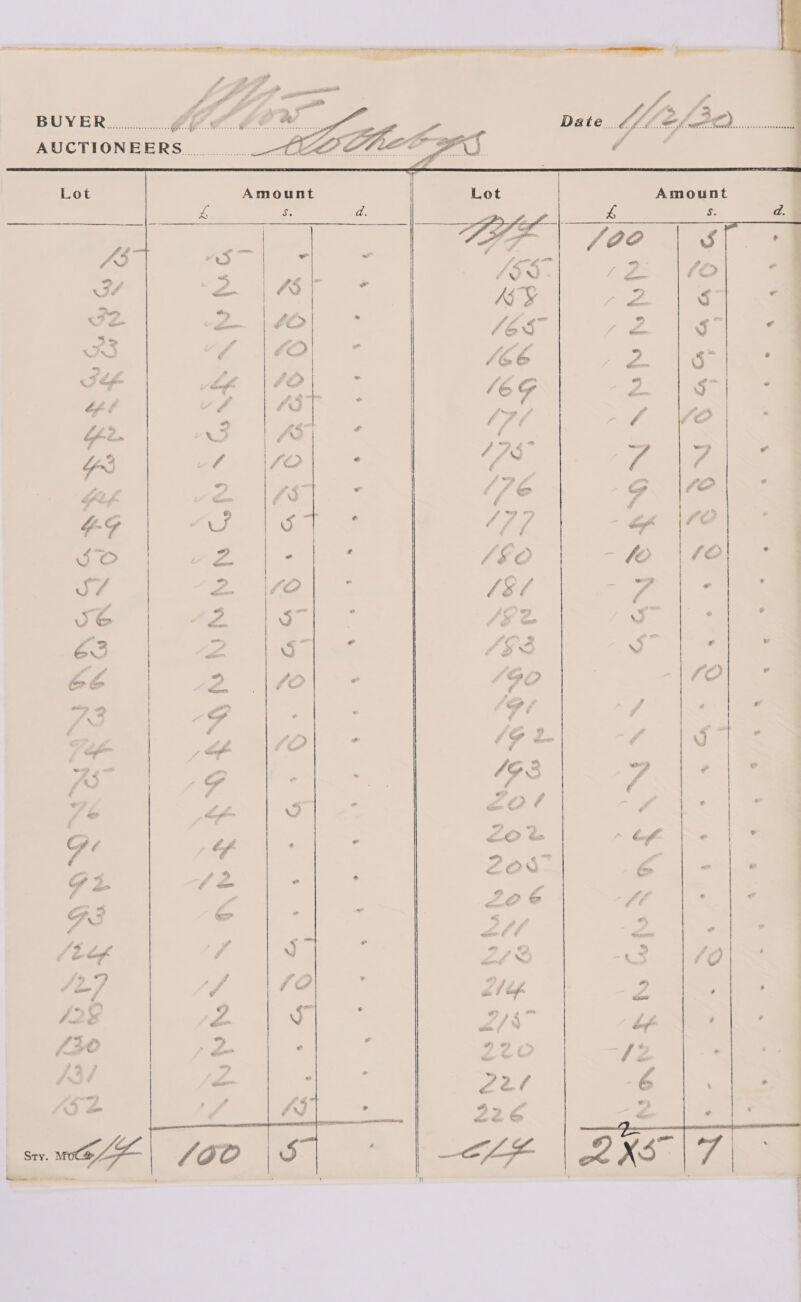 BUYER
Date 4/2/30
AUCTIONEERS Sothebys
Lot Amount Lot Amount
£ s. d. £ s. d.
B/F 100 5 -
15 5 - -
155 2 10 -
31 2 15 -
158 2 5 -
32 2 10 -
165 2 5 -
33 1 10 -
166 2 5 -
34 4 10 -
169 2 5 -
41 1 15 -
171 1 10 -
42 3 15 -
175 7 7 -
43 1 10 -
176 9 10 -
44 2 15 -
177 4 10 -
49 3 5 -
180 10 10 -
50 2 - -
181 7 - -
51 2 10 -
182 5 - -
56 2 5 -
183 5 - -
63 2 5 -
190 - 10 -
66 2 10 -
191 1 - -
73 9 - -
192 1 5 -
74 4 10 -
193 7 - -
75 9 - -
201 1 - -
76 4 5 -
202 4 - -
91 4 - -
205 6 - -
92 12 - -
206 11 - -
93 6 - -
211 2 - -
124 1 5 -
213 3 10 -
127 1 10 -
214 2 - -
128 2 5 -
215 4 - -
130 2 - -
220 12 - -
131 2 - -
221 6 - -
152 1 15 -
226 2 - -
Sty. C/F 100 5 -
C/F 225 7 -